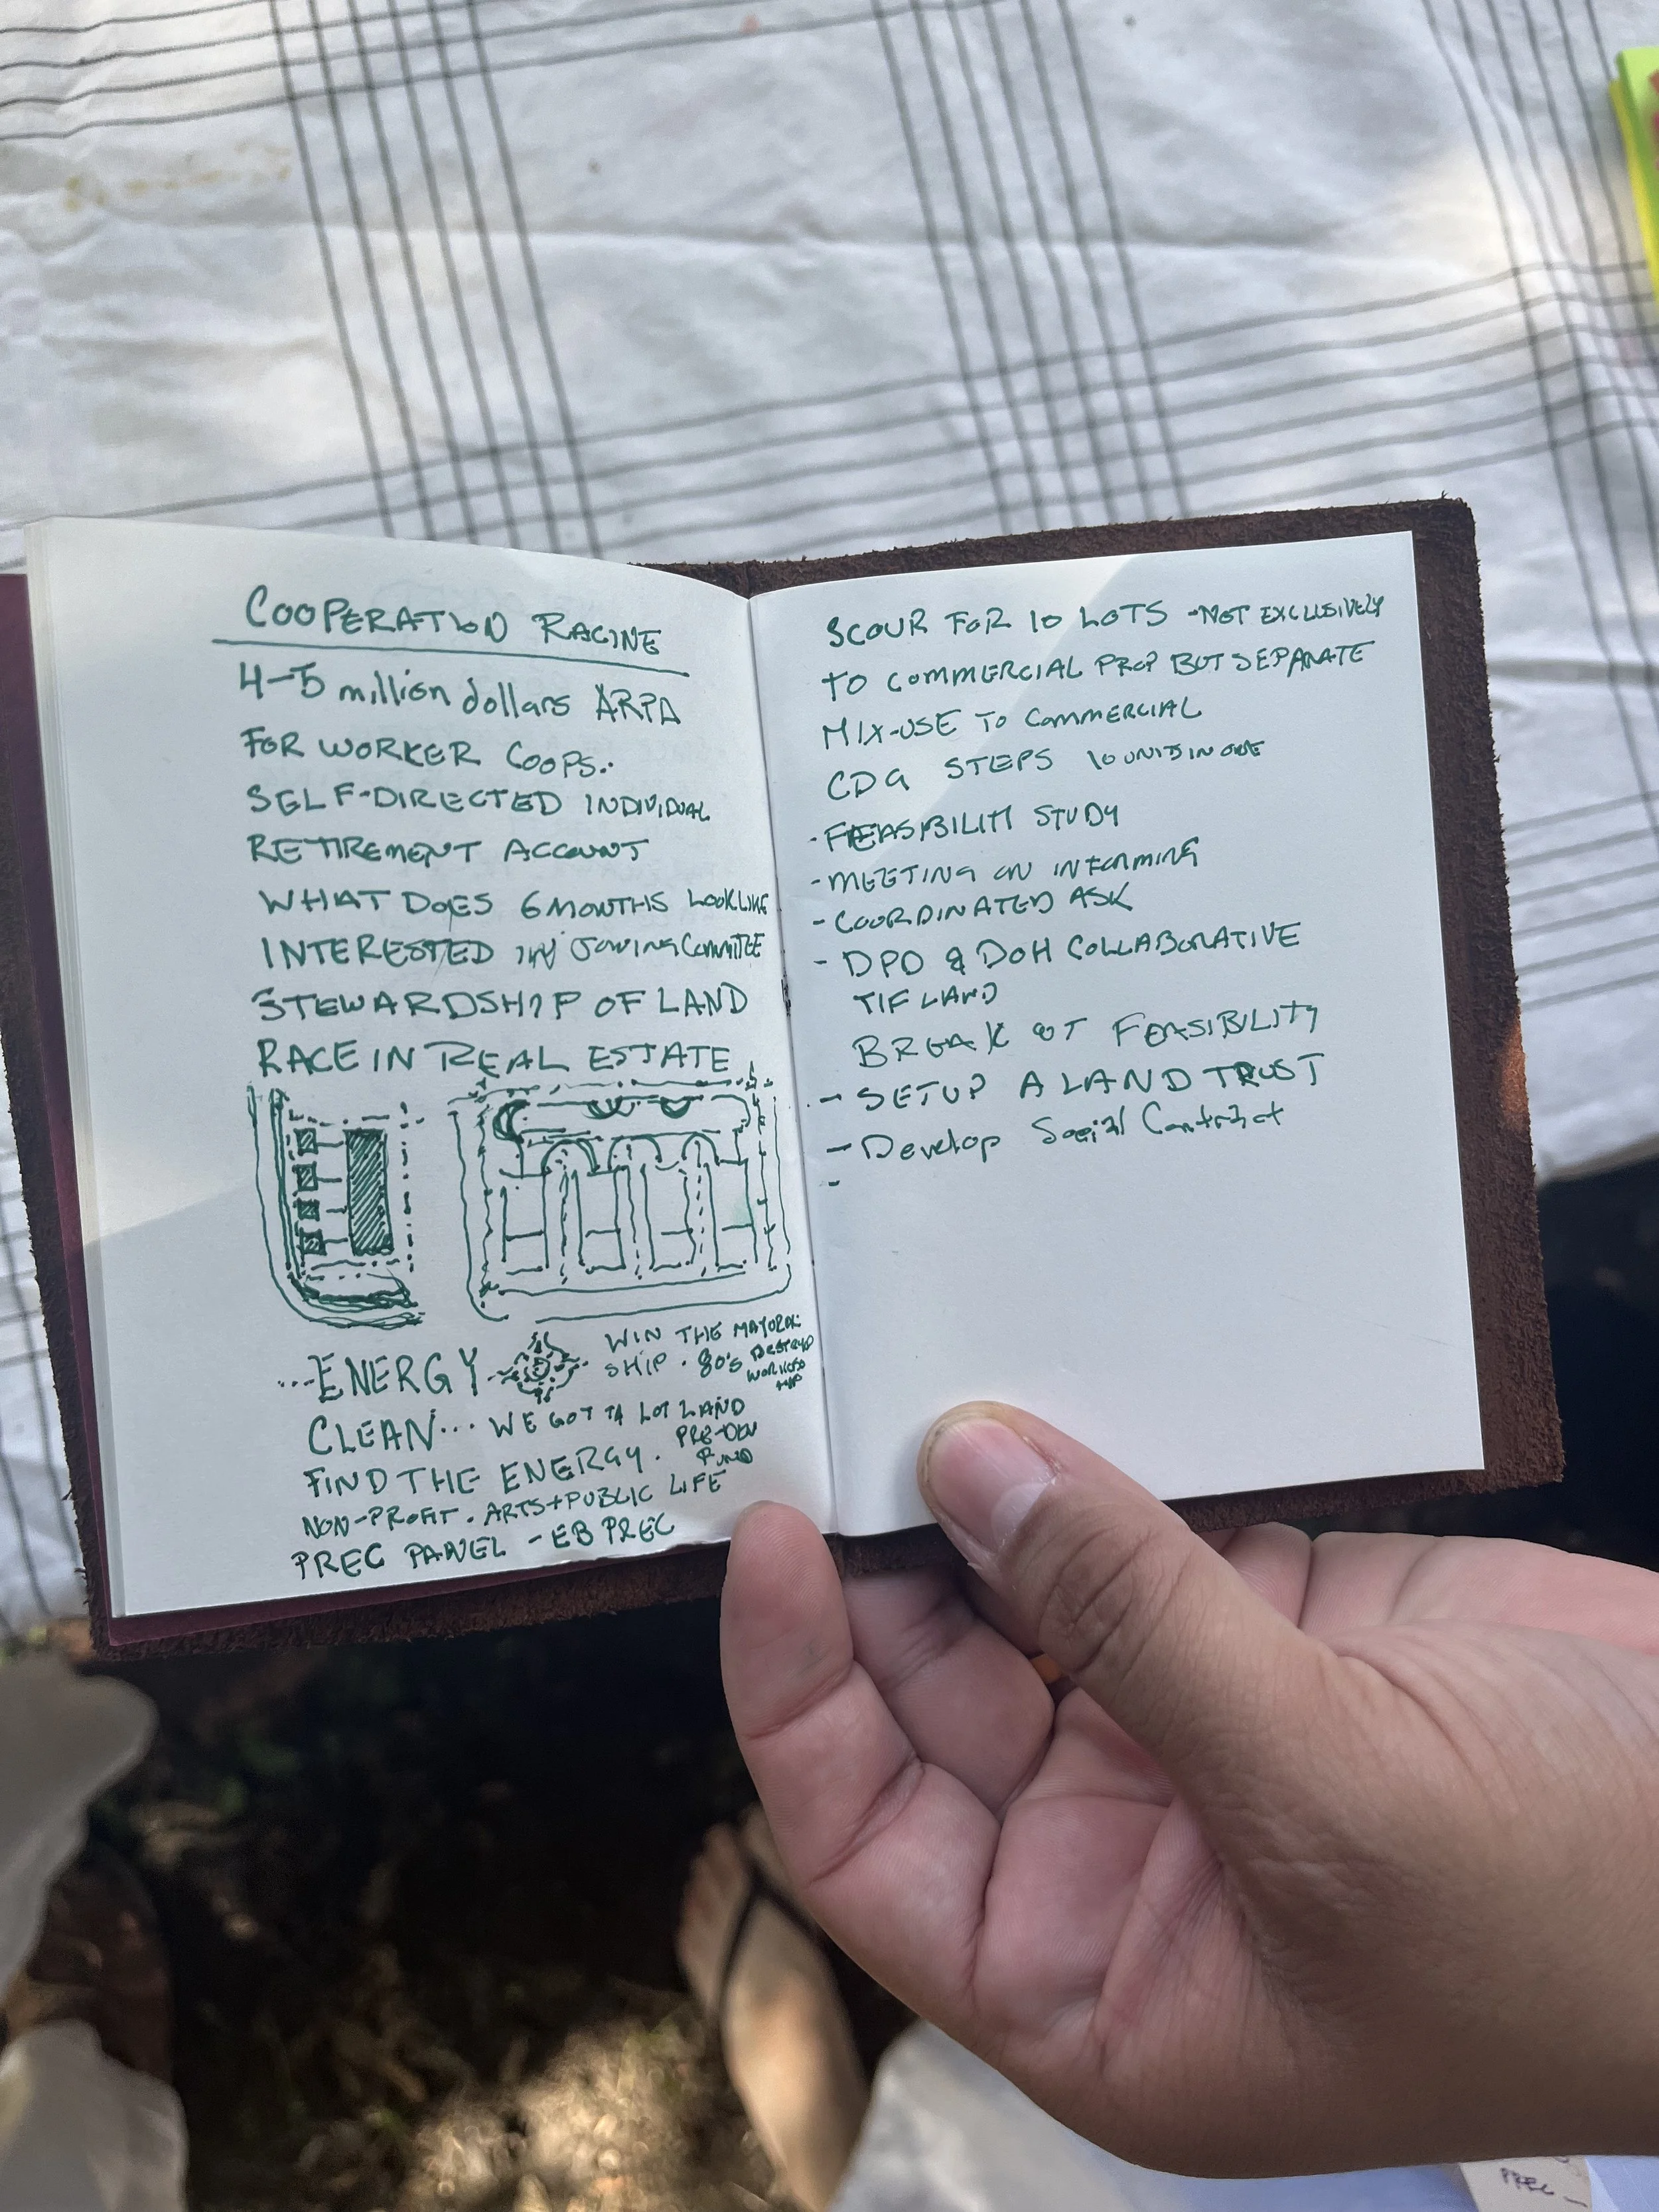 COOPERATION RACINE
4-5 million dollars ARPA
FOR WORKER COOPS.
SELF-DIRECTED INDIVIDUAL
RETIREMENT ACCOUNT
WHAT DOES 6 MONTHS LOOK LIKE
INTERESTED IN JOINING COMMITTEE
STEWARDSHIP OF LAND
RACE IN REAL ESTATE
...ENERGY
WIN THE MAYORAL
SHIP. 80's DESTROYED
CLEAN... WE GOT TA LOT LAND
PRE-DEV
FUND
FIND THE ENERGY.
NON-PROFIT. ARTS+PUBLIC LIFE
PREC PANEL - EB PREC
SCOUR FOR 10 LOTS -NOT EXCLUSIVELY
TO COMMERCIAL PROP BUT SEPARATE
MIX-USE TO COMMERCIAL
CDG STEPS 10 UNITS IN ONE
- FEASIBILITY STUDY
- MEETING ON INFORMING
- COORDINATED ASK
- DPD & DOH COLLABORATIVE
TIF LAND
BREAK OUT FEASIBILITY
- SETUP A LAND TRUST
- Develop Social Contract
-
PREC -